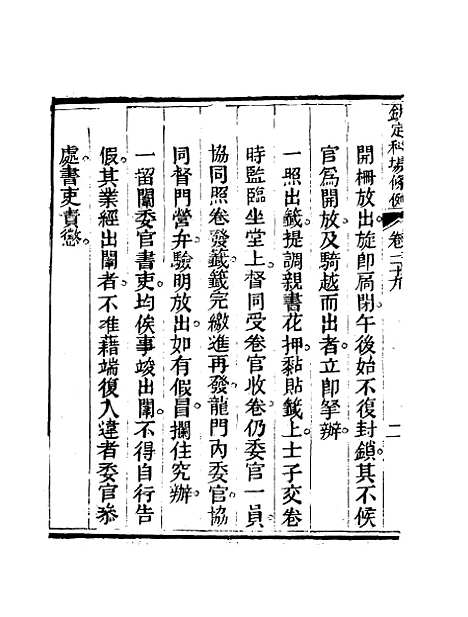 欽定科場條例 卷二十九 二
開柵放出旋即扃閉午後始不復封鎖其不候
官爲開放及騎越而出者立即拏辦
一照出籤提調親書花押黏貼籤上士子交卷
時監臨坐堂上督同受卷官收卷仍委官一員
協同照卷發籤籤完繳進再發龍門內委官協
同督門營弁驗明放出如有假冒攔住究辦
一留闈委官書吏均俟事竣出闈不得自行告
假其業經出闈者不准藉端復入違者委官叅
處書吏責懲